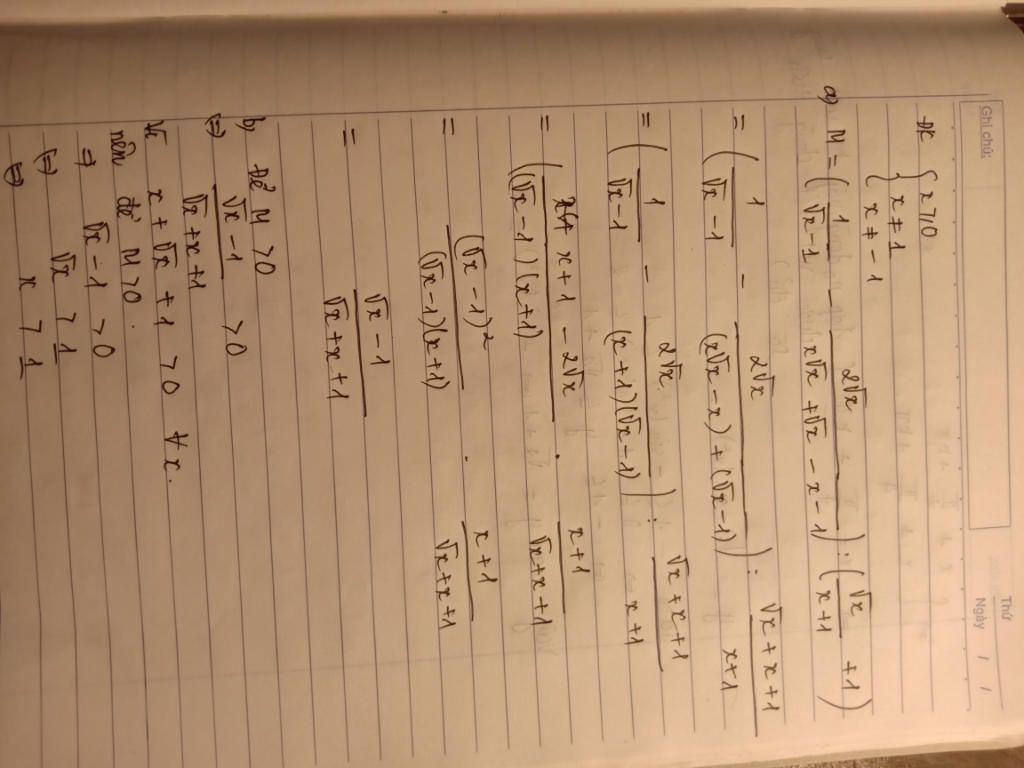 Ghi chú:
Thứ
Ngày / /
ĐK { x ≥ 0
x ≠ 1
x ≠ -1
a) M = ( 1/(√x-1) - 2√x/(x√x + √x - x - 1) ) : ( √x/(x+1) + 1 )
= ( 1/(√x-1) - 2√x/((x√x - x) + (√x-1)) ) : (√x + x + 1)/(x+1)
= ( 1/(√x-1) - 2√x/((x+1)(√x-1)) ) : (√x + x + 1)/(x+1)
= ( (x+1 - 2√x)/((√x-1)(x+1)) . (x+1)/(√x+x+1)
= (√x-1)²/((√x-1)(x+1)) . (x+1)/(√x+x+1)
= (√x-1)/(√x+x+1)
b) Để M > 0
(=) (√x-1)/(√x+x+1) > 0
Vì x + √x + 1 > 0 ∀x.
nên để M > 0.
=> √x - 1 > 0
(=) √x > 1
(=) x > 1